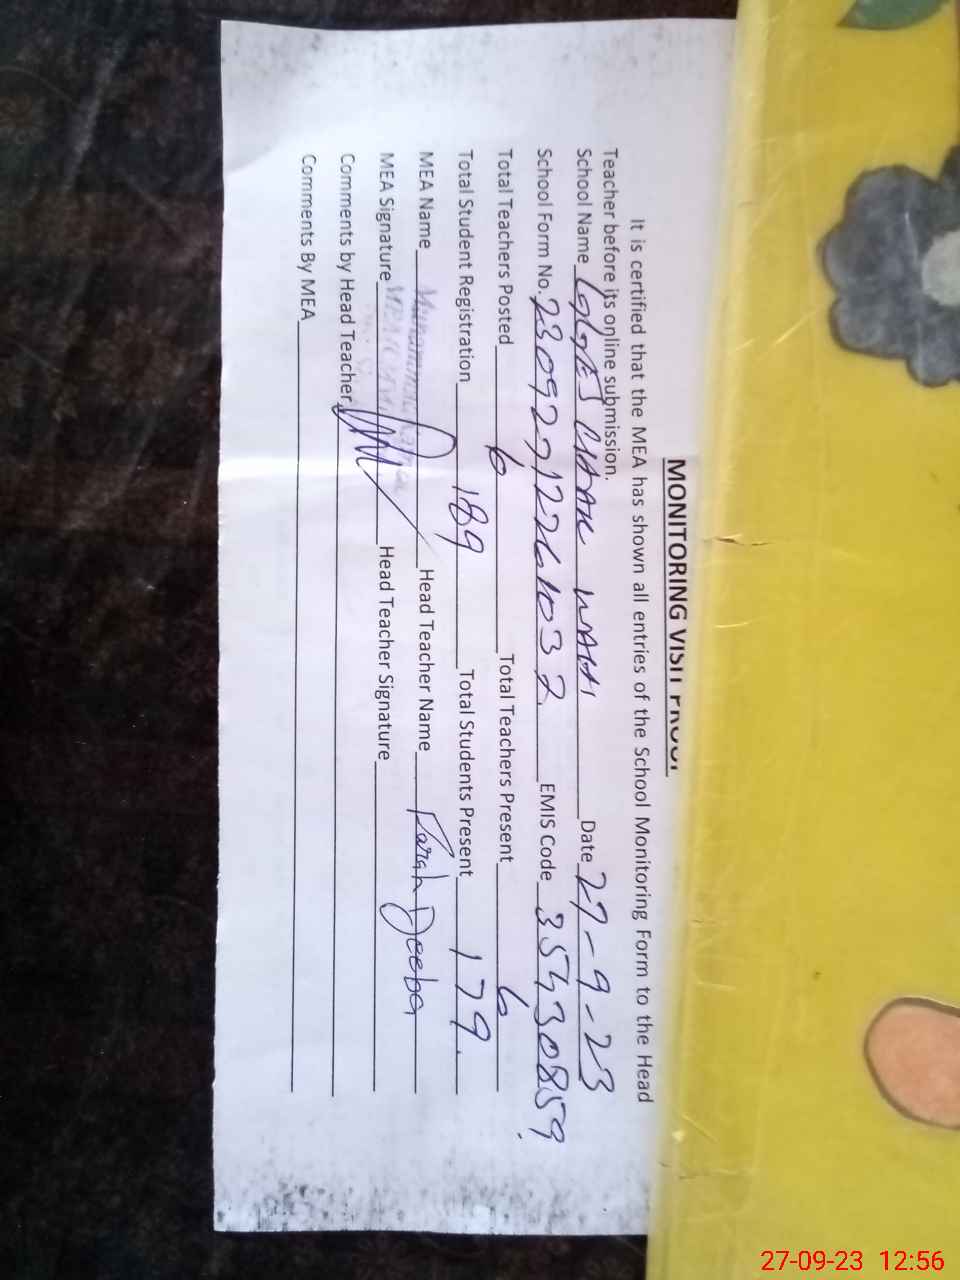 MONITORING VISIT PROOF
It is certified that the MEA has shown all entries of the School Monitoring Form to the Head
Teacher before its online submission.
School Name GGES CHAK WAHI Date 27-9-23
School Form No. EMIS Code 35430859
Total Teachers Posted 6 Total Teachers Present 6
Total Student Registration 189 Total Students Present 179
MEA Name Muhammad Head Teacher Name Farah Deeba
MEA Signature Head Teacher Signature
Comments by Head Teacher
Comments By MEA
27-09-23 12:56